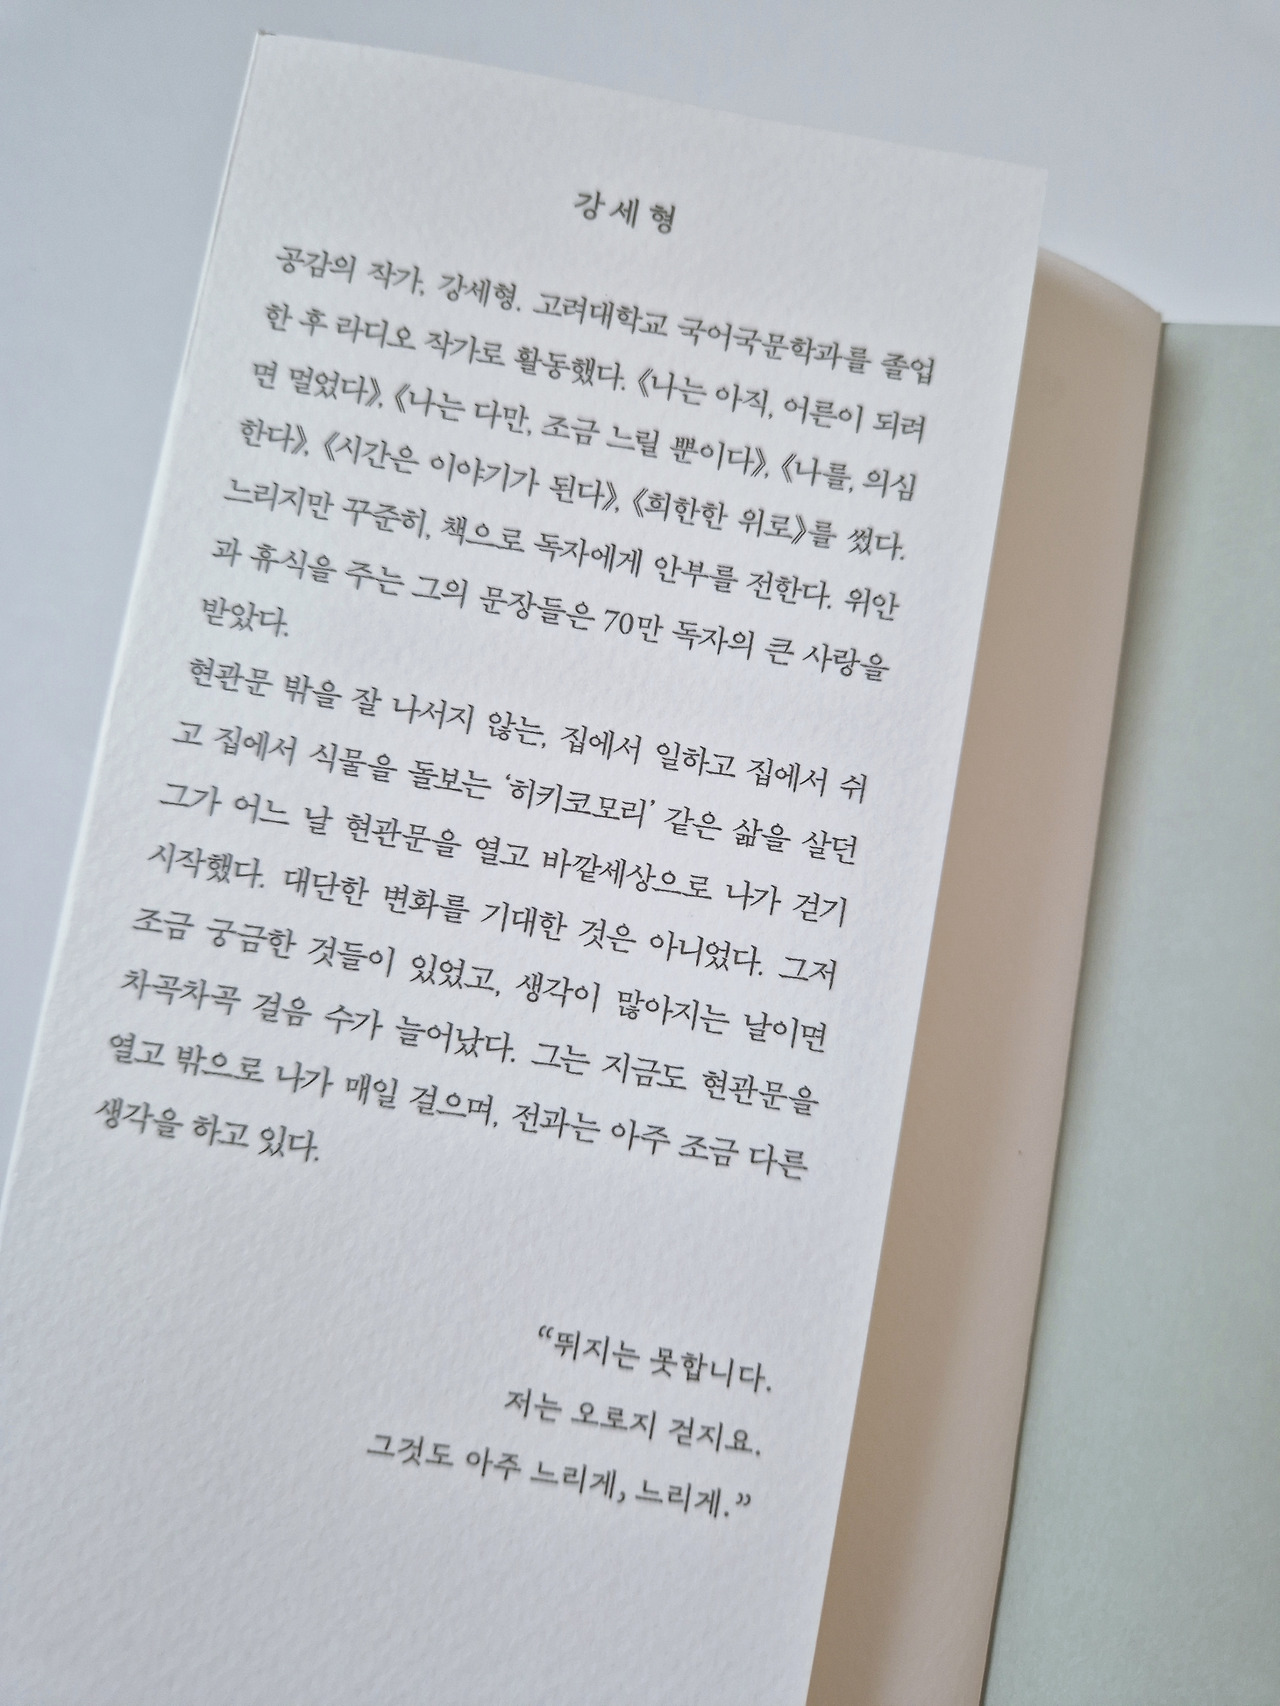 강세형
공감의 작가, 강세형. 고려대학교 국어국문학과를 졸업
한 후 라디오 작가로 활동했다. 《나는 아직, 어른이 되려
면 멀었다》, 《나는 다만, 조금 느릴 뿐이다》, 《나를, 의심
한다》, 《시간은 이야기가 된다》, 《희한한 위로》를 썼다.
느리지만 꾸준히, 책으로 독자에게 안부를 전한다. 위안
과 휴식을 주는 그의 문장들은 70만 독자의 큰 사랑을
받았다.
현관문 밖을 잘 나서지 않는, 집에서 일하고 집에서 쉬
고 집에서 식물을 돌보는 ‘히키코모리’ 같은 삶을 살던
그가 어느 날 현관문을 열고 바깥세상으로 나가 걷기
시작했다. 대단한 변화를 기대한 것은 아니었다. 그저
조금 궁금한 것들이 있었고, 생각이 많아지는 날이면
차곡차곡 걸음 수가 늘어났다. 그는 지금도 현관문을
열고 밖으로 나가 매일 걸으며, 전과는 아주 조금 다른
생각을 하고 있다.
“뛰지는 못합니다.
저는 오로지 걷지요.
그것도 아주 느리게, 느리게.”